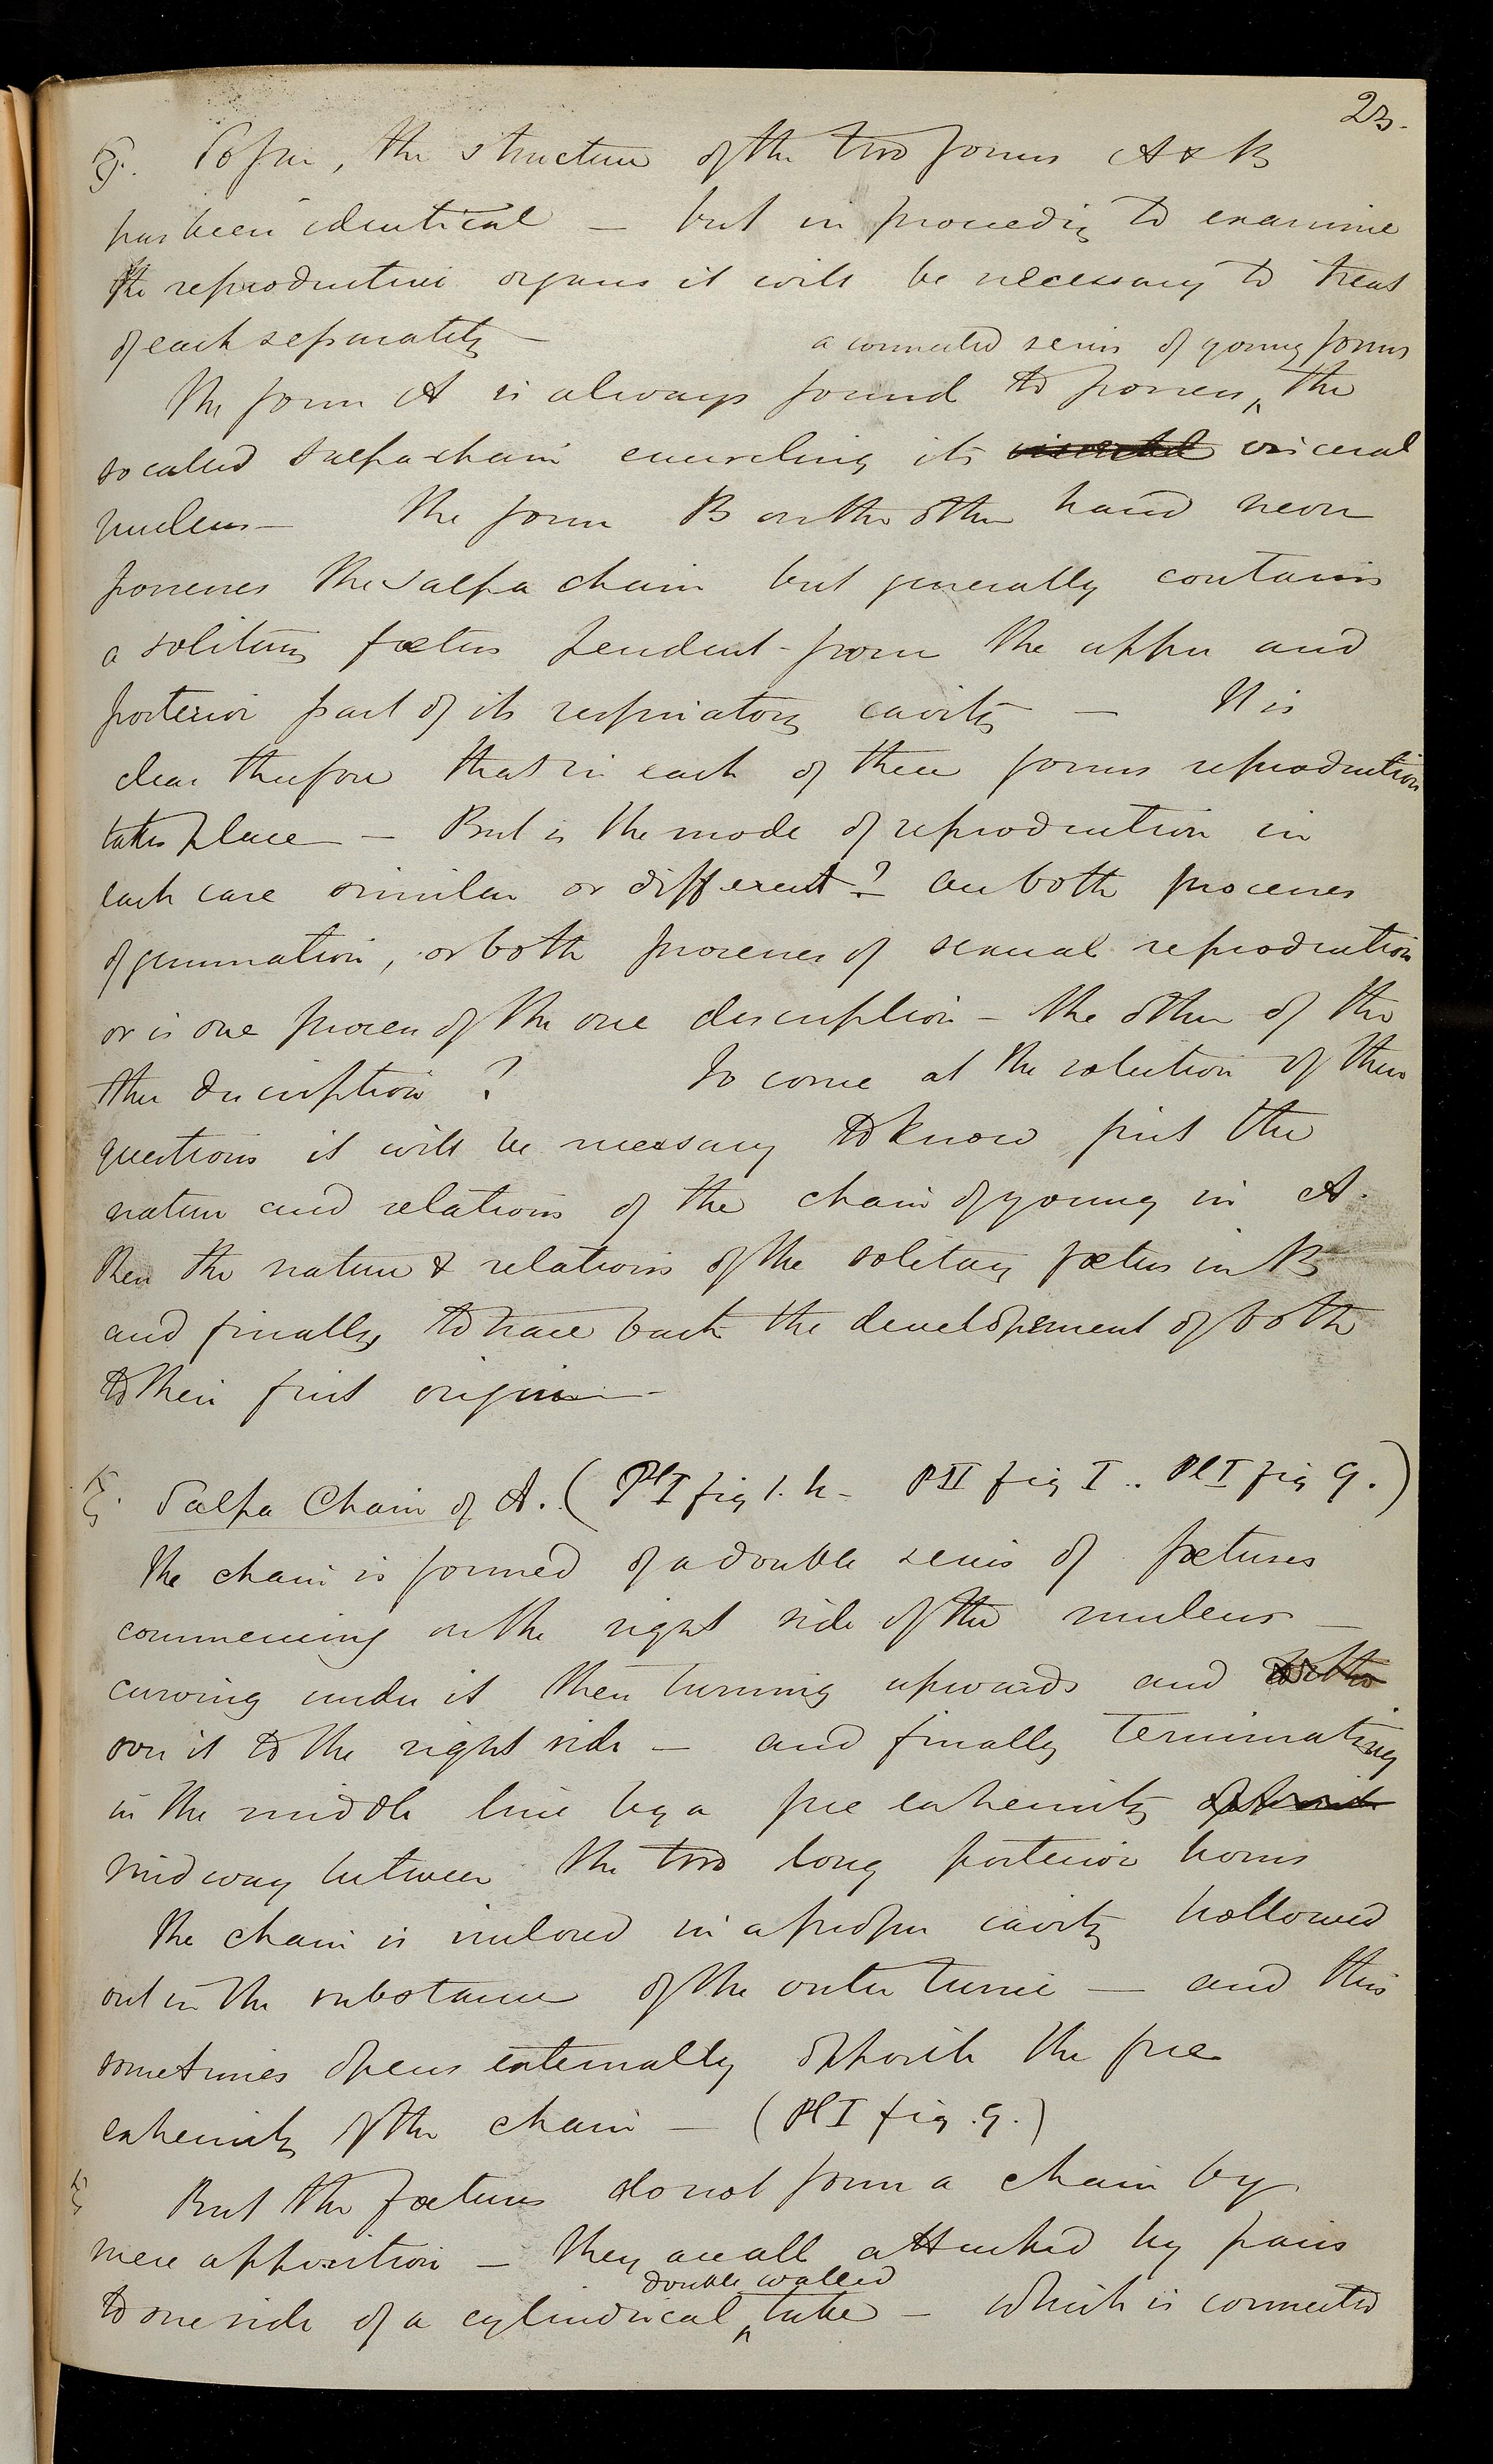 23.
§. So far, the structure of the two forms A & B
has been identical — but in proceeding to examine
the reproductive organs it will be necessary to treat
of each separately —
a connected series of young forms
The form A is always found to possess ^ the
so called Salpa-chain encircling its visceral visceral
nucleus — The form B on the other hand never
possesses the Salpa chain but generally contains
a solitary fœtus pendent from the upper and
posterior part of its respiratory cavity — It is
clear therefore that in each of these forms reproduction
takes place — But is the mode of reproduction in
each case similar or different? are both processes
of gemmation, or both processes of sexual reproduction
or is one process of the one description — the other of the
other description ? To come at the solution of these
questions it will be necessary to know first the
nature and relations of the chain of young in A.
then the nature & relations of the solitary fœtus in B
and finally to trace back the developement of both
to their first origin —
§. Salpa Chain of A. (Pl I fig 1. h — Pl II fig I .. Pl I fig 9.)
The chain is formed of a double series of fœtuses
commencing on the right side of the nucleus —
curving under it then turning upwards and
over it to the right side — and finally terminating
in the middle line by a free extremity
midway between the two long posterior horns
The chain is inclosed in a proper cavity hollowed
out in the substance of the outer tunic — and this
sometimes opens externally opposite the free
extremity of the chain — (Pl I fig. 9.)
§ But the fœtuses do not form a chain by
mere apposition — they are all attached by pairs
double walled
to one side of a cylindrical ^ tube — which is connected